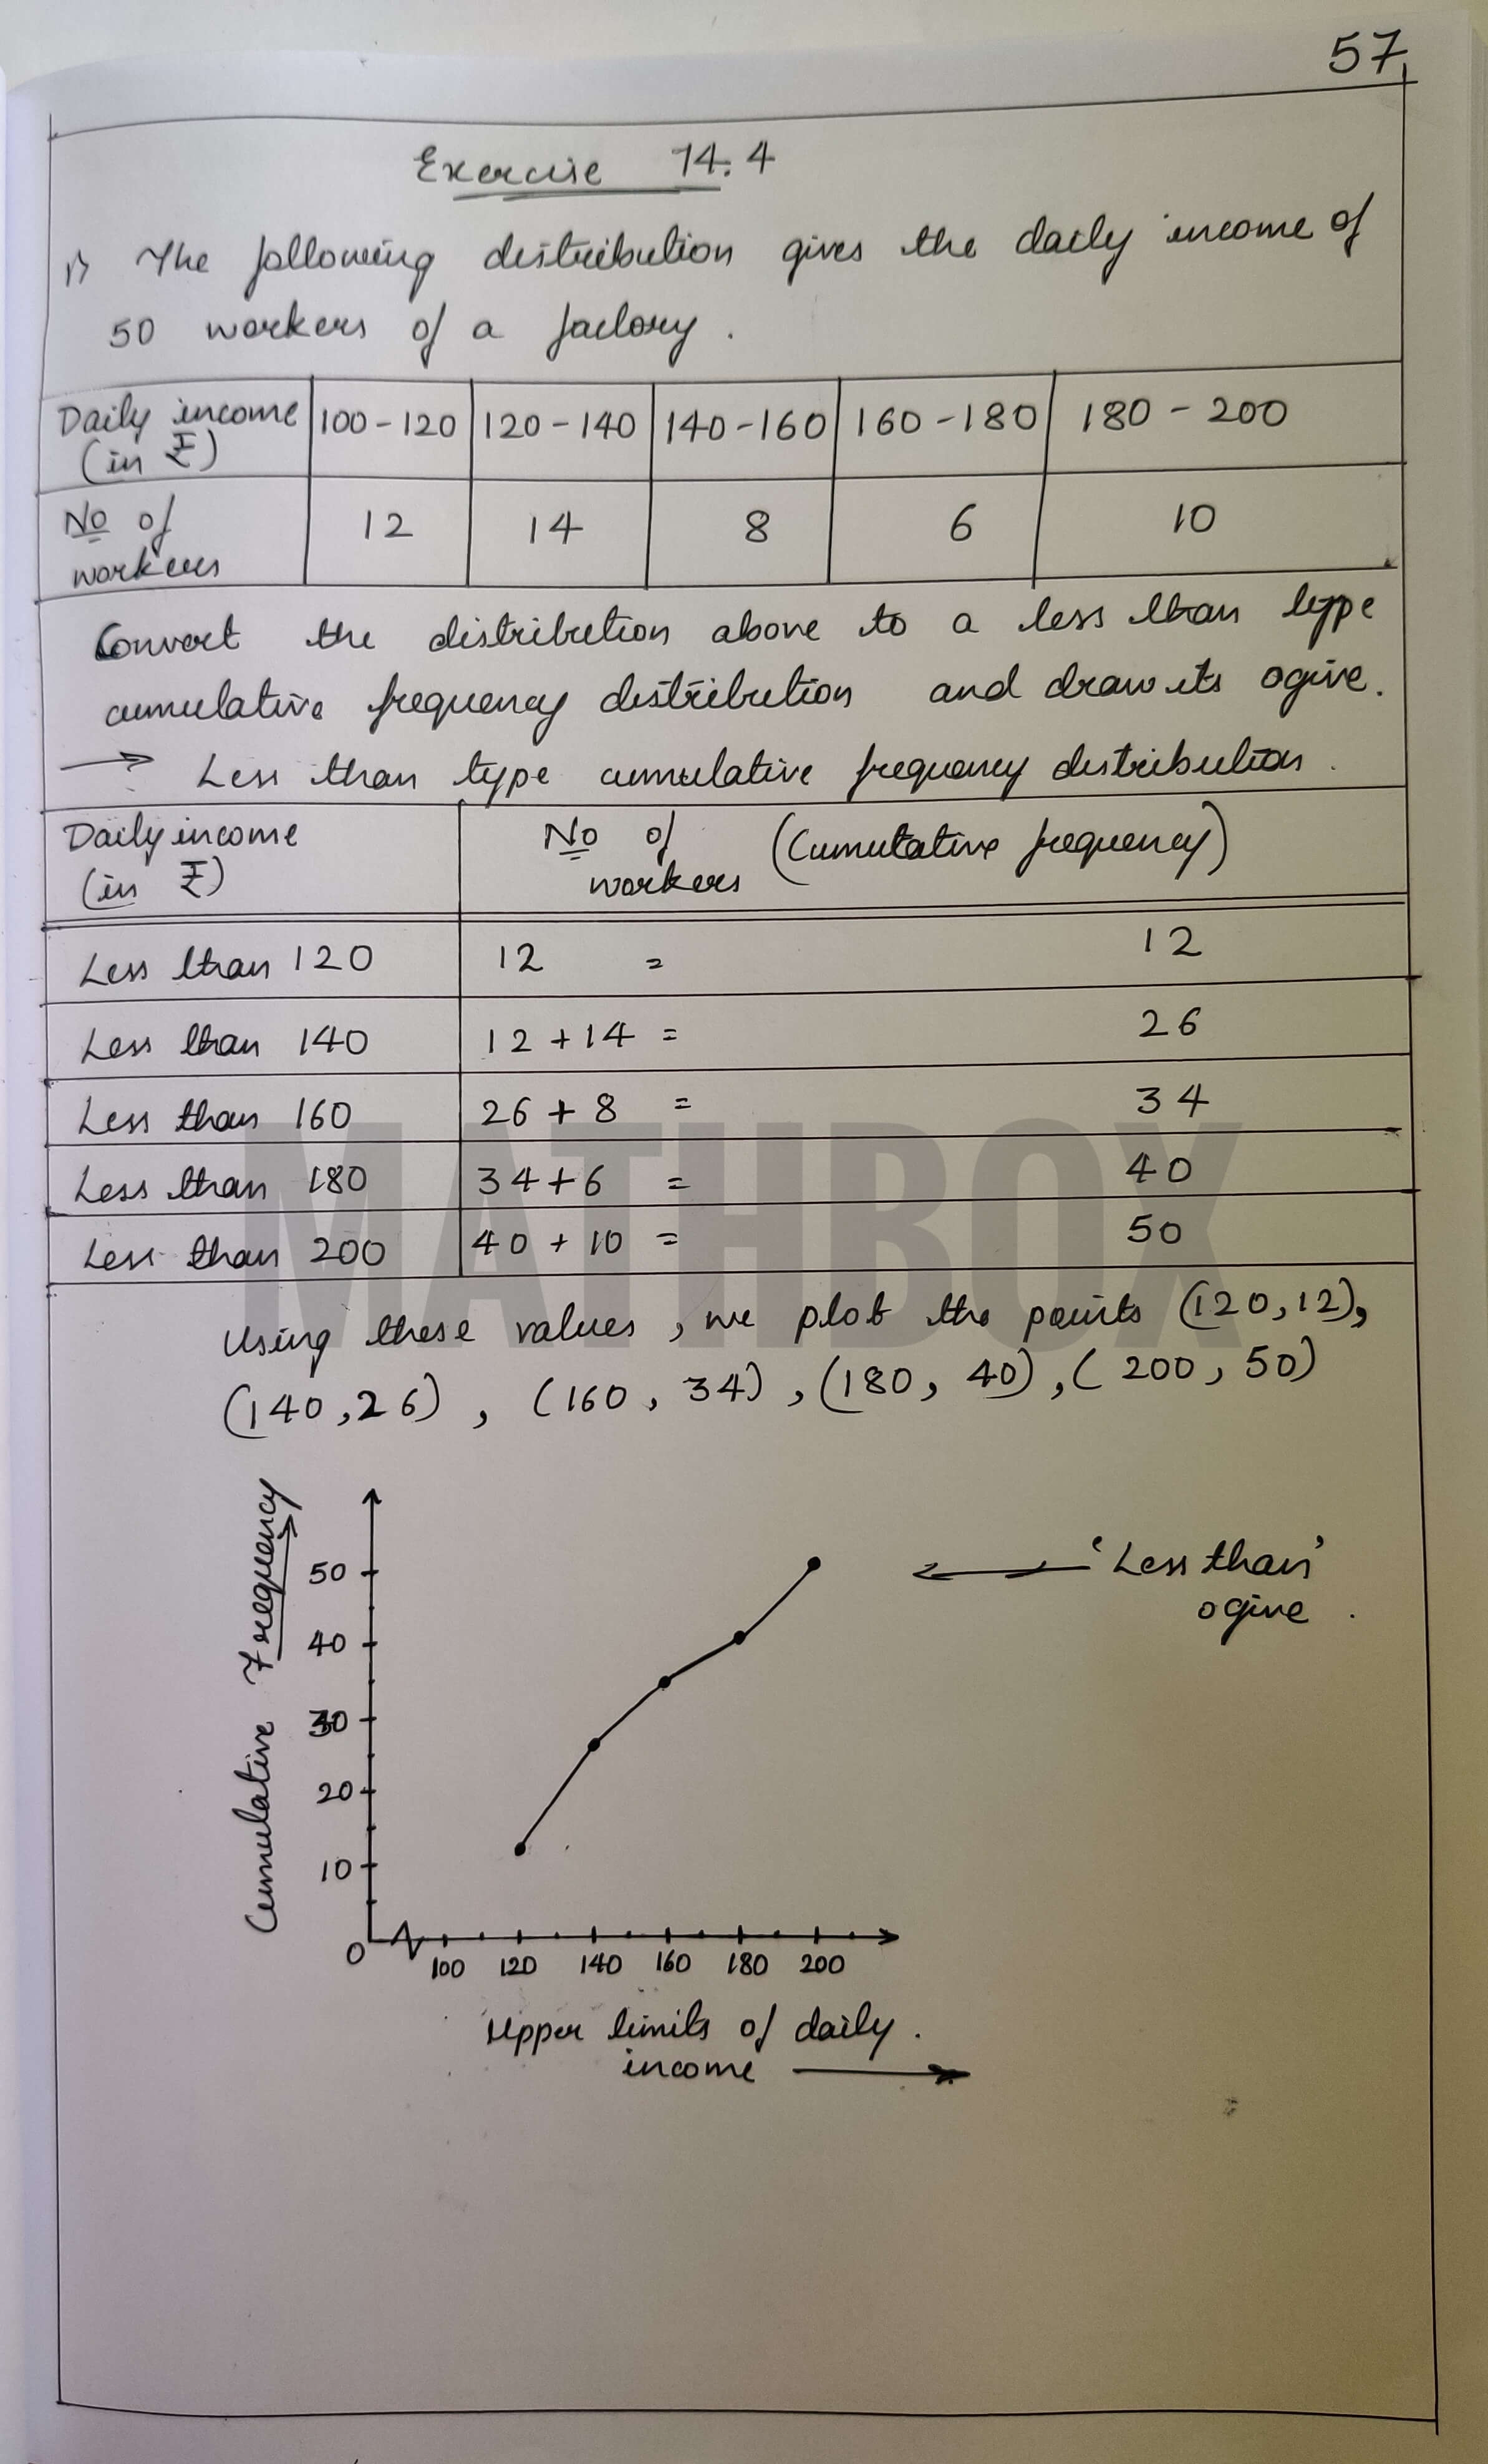 57
Exercise 14.4
1) The following distribution gives the daily income of
50 workers of a factory.
Daily income (in ₹) 100-120 120-140 140-160 160-180 180-200
No of workers 12 14 8 6 10
Convert the distribution above to a less than type
cumulative frequency distribution and draw its ogive.
→ Less than type cumulative frequency distribution.
Daily income (in ₹) No of workers (Cumutative frequency)
Less than 120 12 = 12
Less than 140 12+14 = 26
Less than 160 26+8 = 34
Less than 180 34+6 = 40
Less than 200 40+10 = 50
MATHBOX
Using these values, we plot the points (120,12),
(140,26), (160,34), (180,40), (200,50)
Cumulative Frequency
50
40
30
20
10
0
100 120 140 160 180 200
'Less than'
ogive.
Upper limits of daily.
income